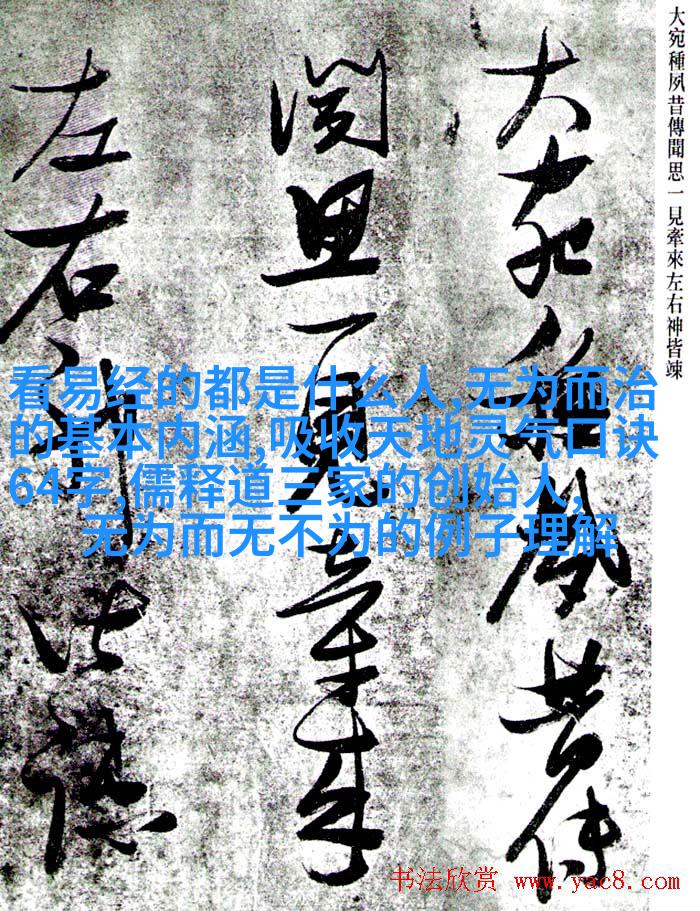 大宛種夙昔傳聞思一見牽來左右神皆竦
大宛種夙昔傳
聞思一見牽來
左右神皆竦
看易经的都是什么人,无为而治
的基本内涵,吸收天地灵气口诀
64字,儒释道三家的创始人,
无为而无不为的例子理解
书法欣赏 www.yac8.com